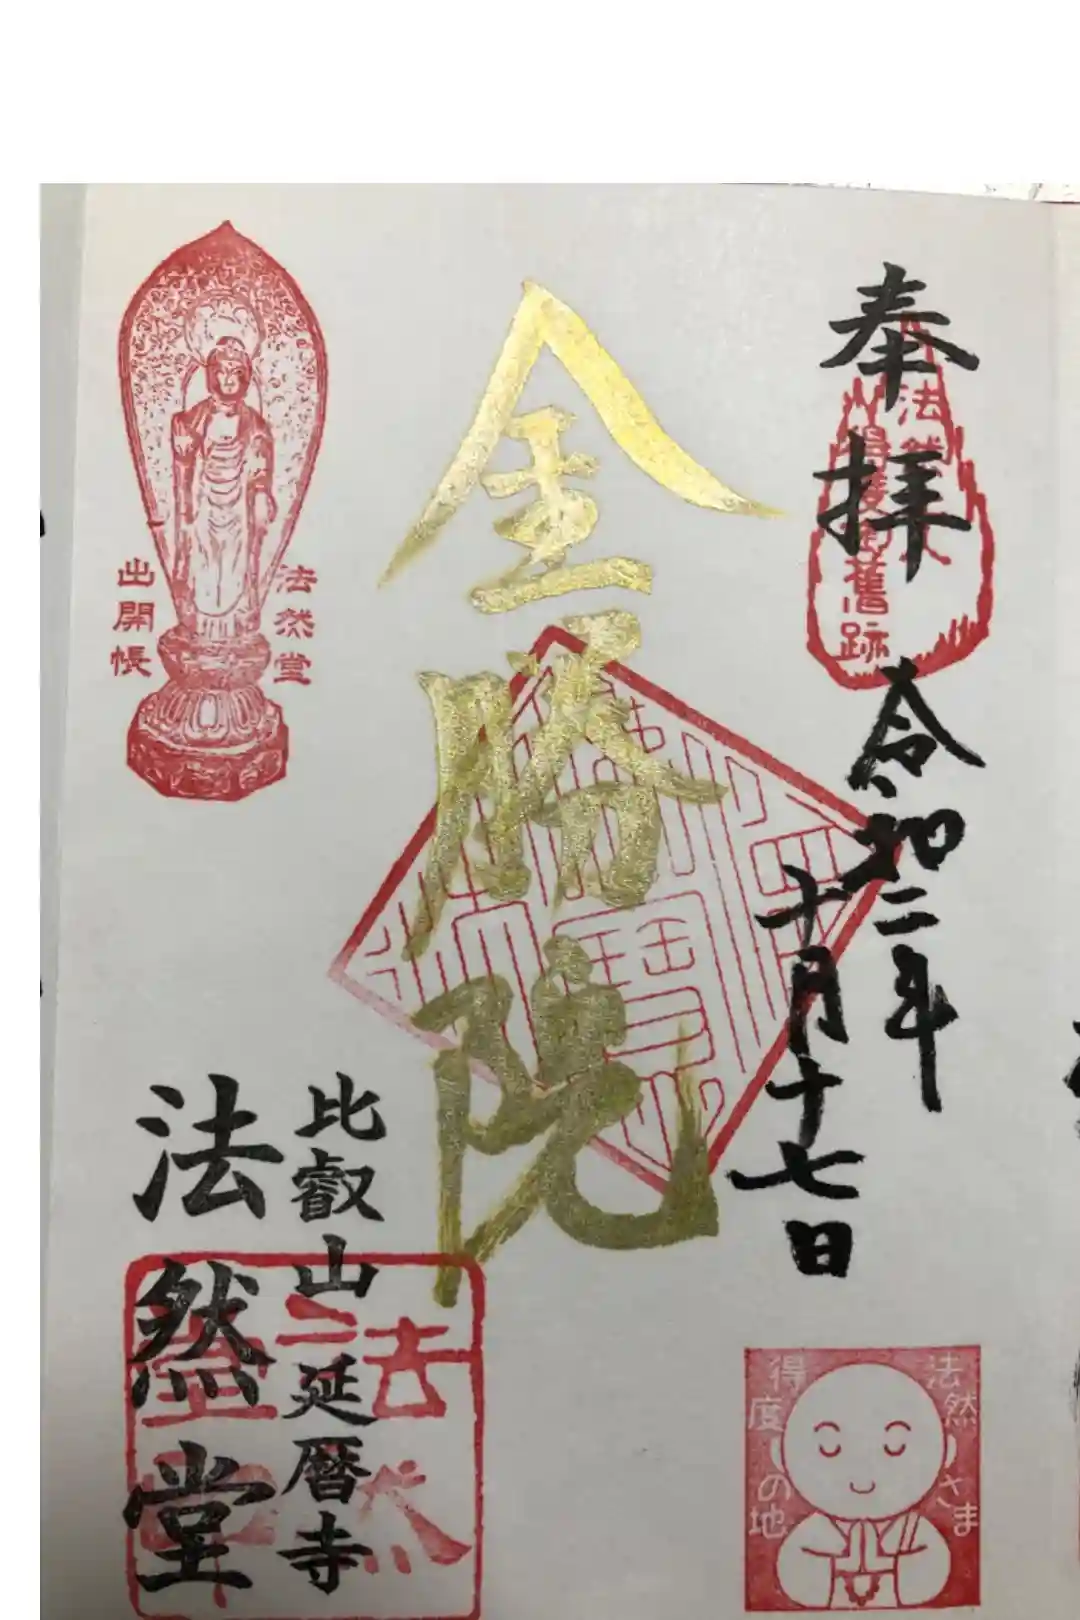 奉拝
法然
得度御舊跡
令和二年
十月十七日
金勝院
法然堂
出開帳
比叡山延暦寺
法然堂
法然さま
得度の地